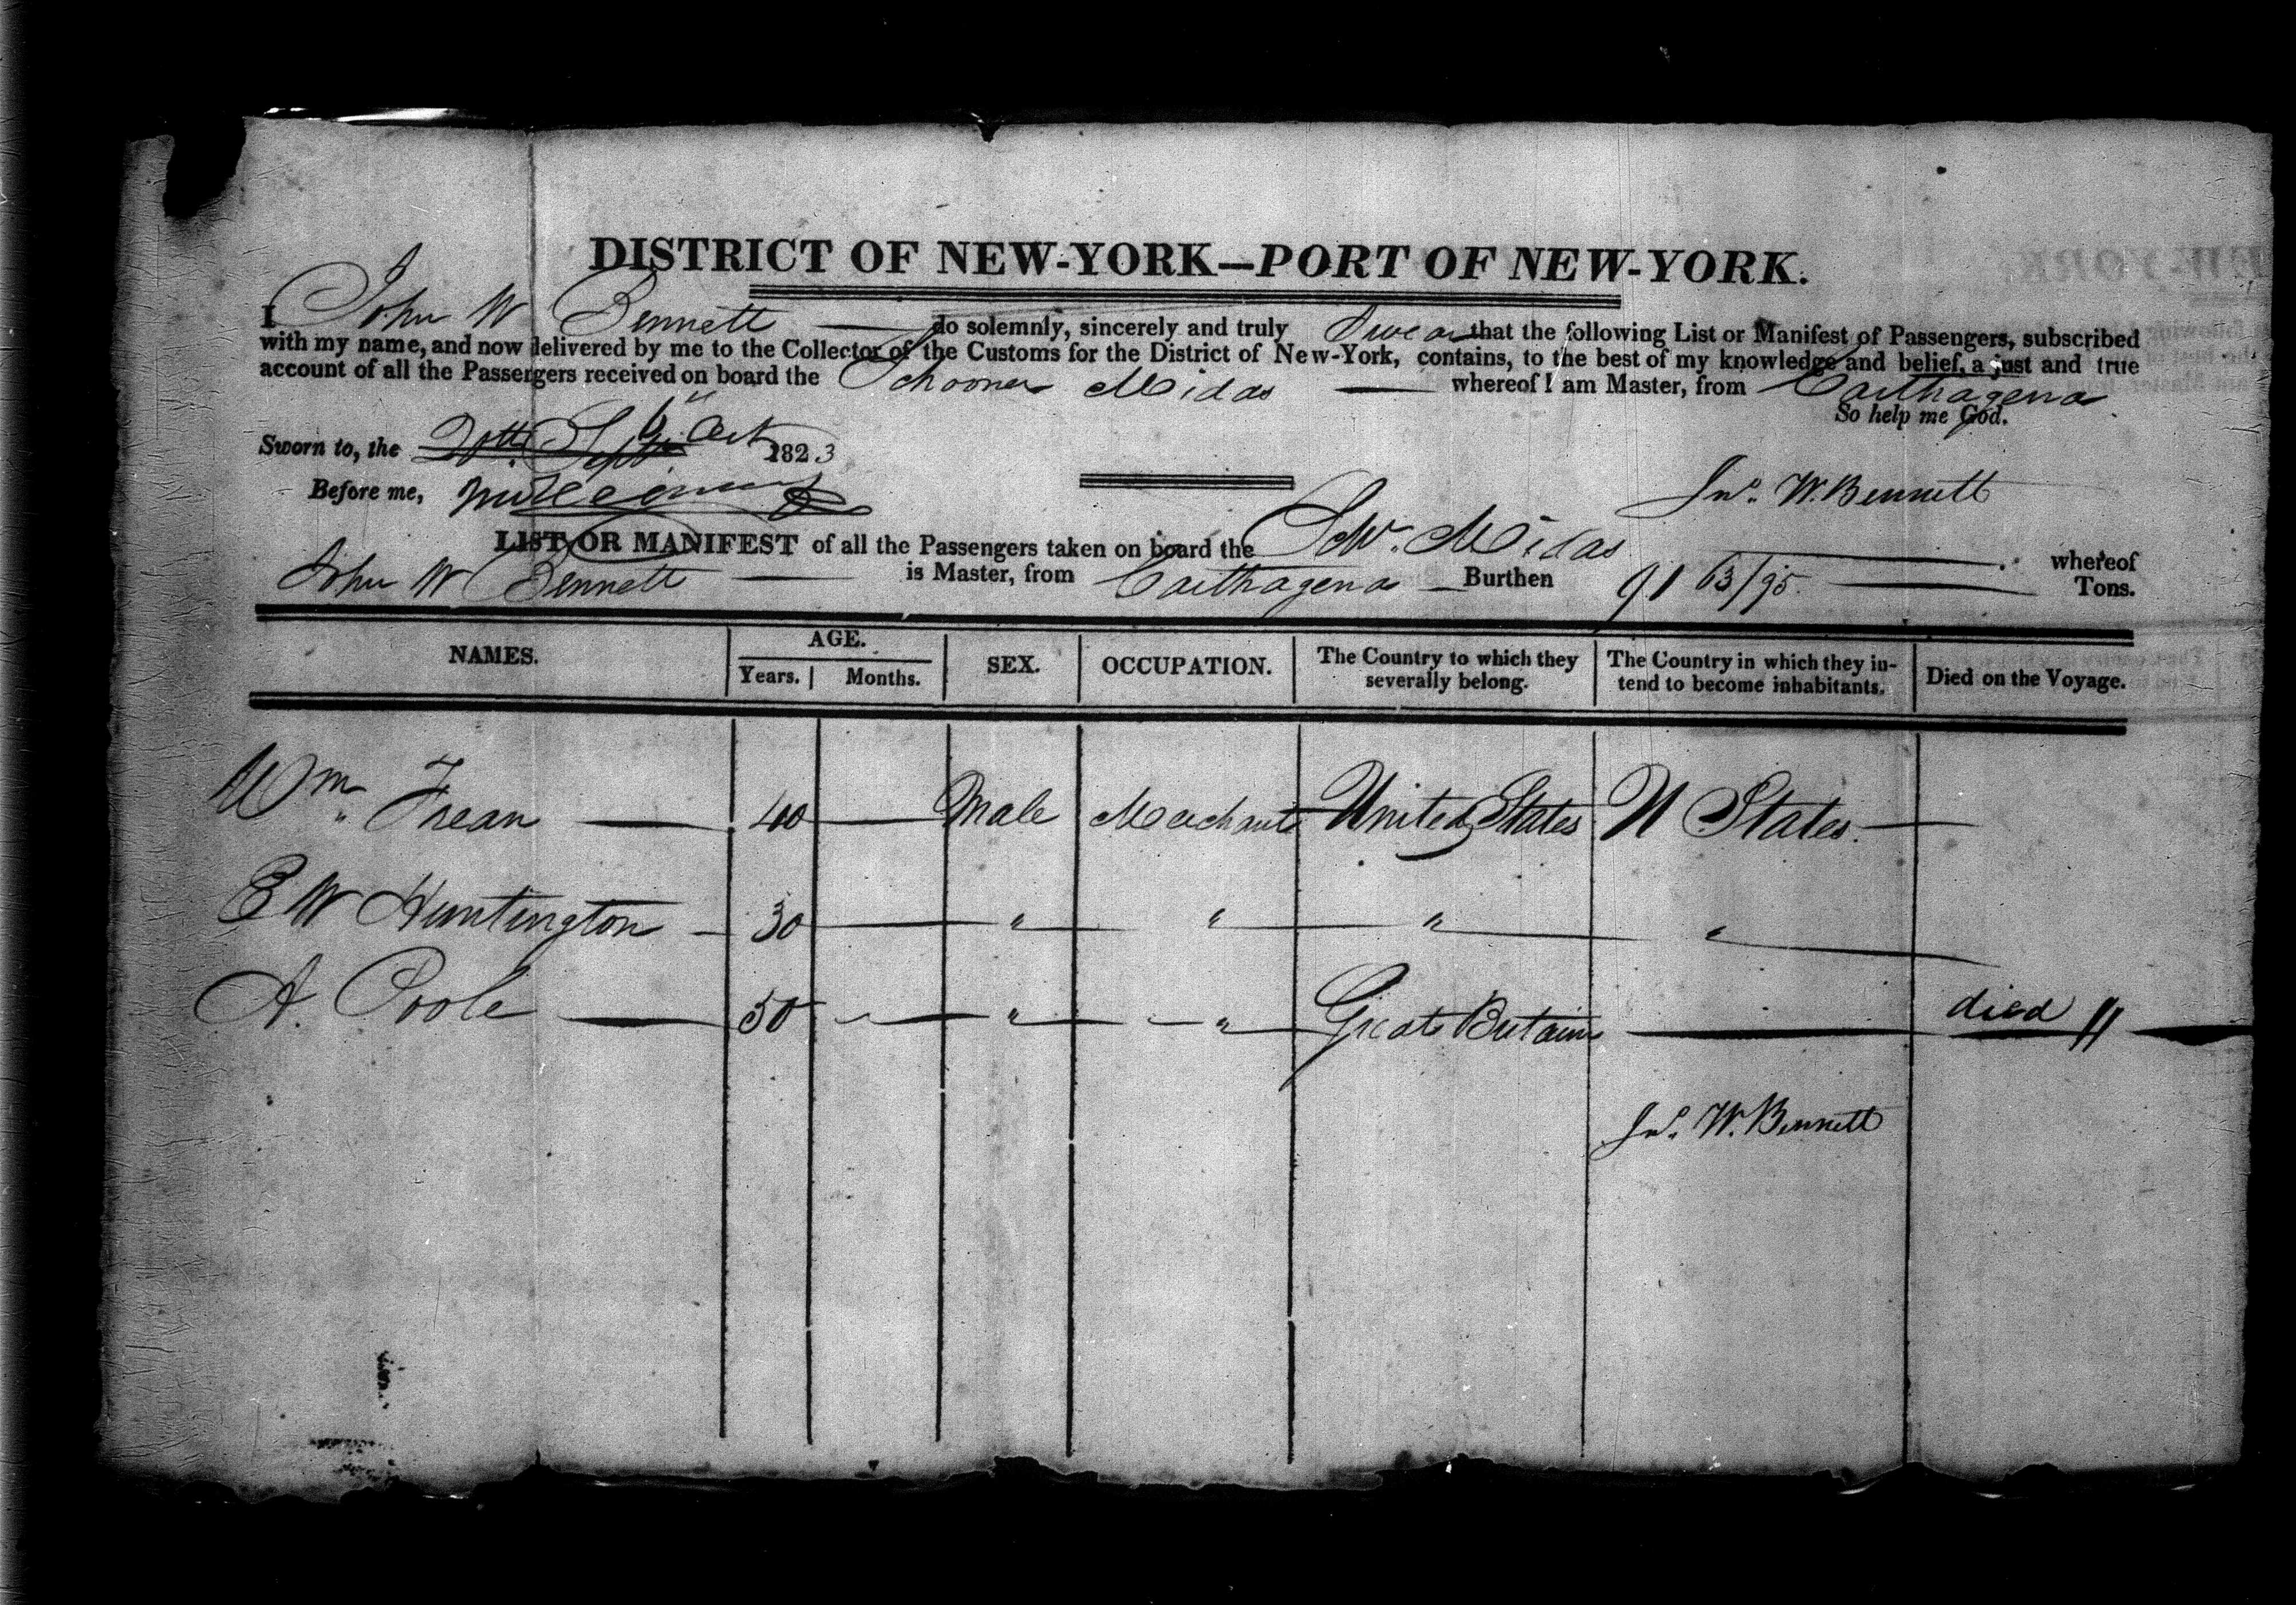 DISTRICT OF NEW-YORK—PORT OF NEW-YORK.
I John W Bennett do solemnly, sincerely and truly Swear that the following List or Manifest of Passengers, subscribed
with my name, and now delivered by me to the Collector of the Customs for the District of New-York, contains, to the best of my knowledge and belief, a just and true
account of all the Passengers received on board the Schooner Midas whereof I am Master, from Carthagena
So help me God.
Sworn to, the 20th Sept 6" Oct 1823
Before me,
Jno. W. Bennett
LIST OR MANIFEST of all the Passengers taken on board the Schr. Midas whereof
John W Bennett is Master, from Carthagena Burthen 91 63/95 Tons.
NAMES. AGE. SEX. OCCUPATION. The Country to which they severally belong. The Country in which they intend to become inhabitants. Died on the Voyage.
Years. Months.
Wm. Frean 40 Male Merchant United States U States
E W Huntington 30 " " " "
A. Poole 50 " " Great Britain died
Jno. W. Bennett